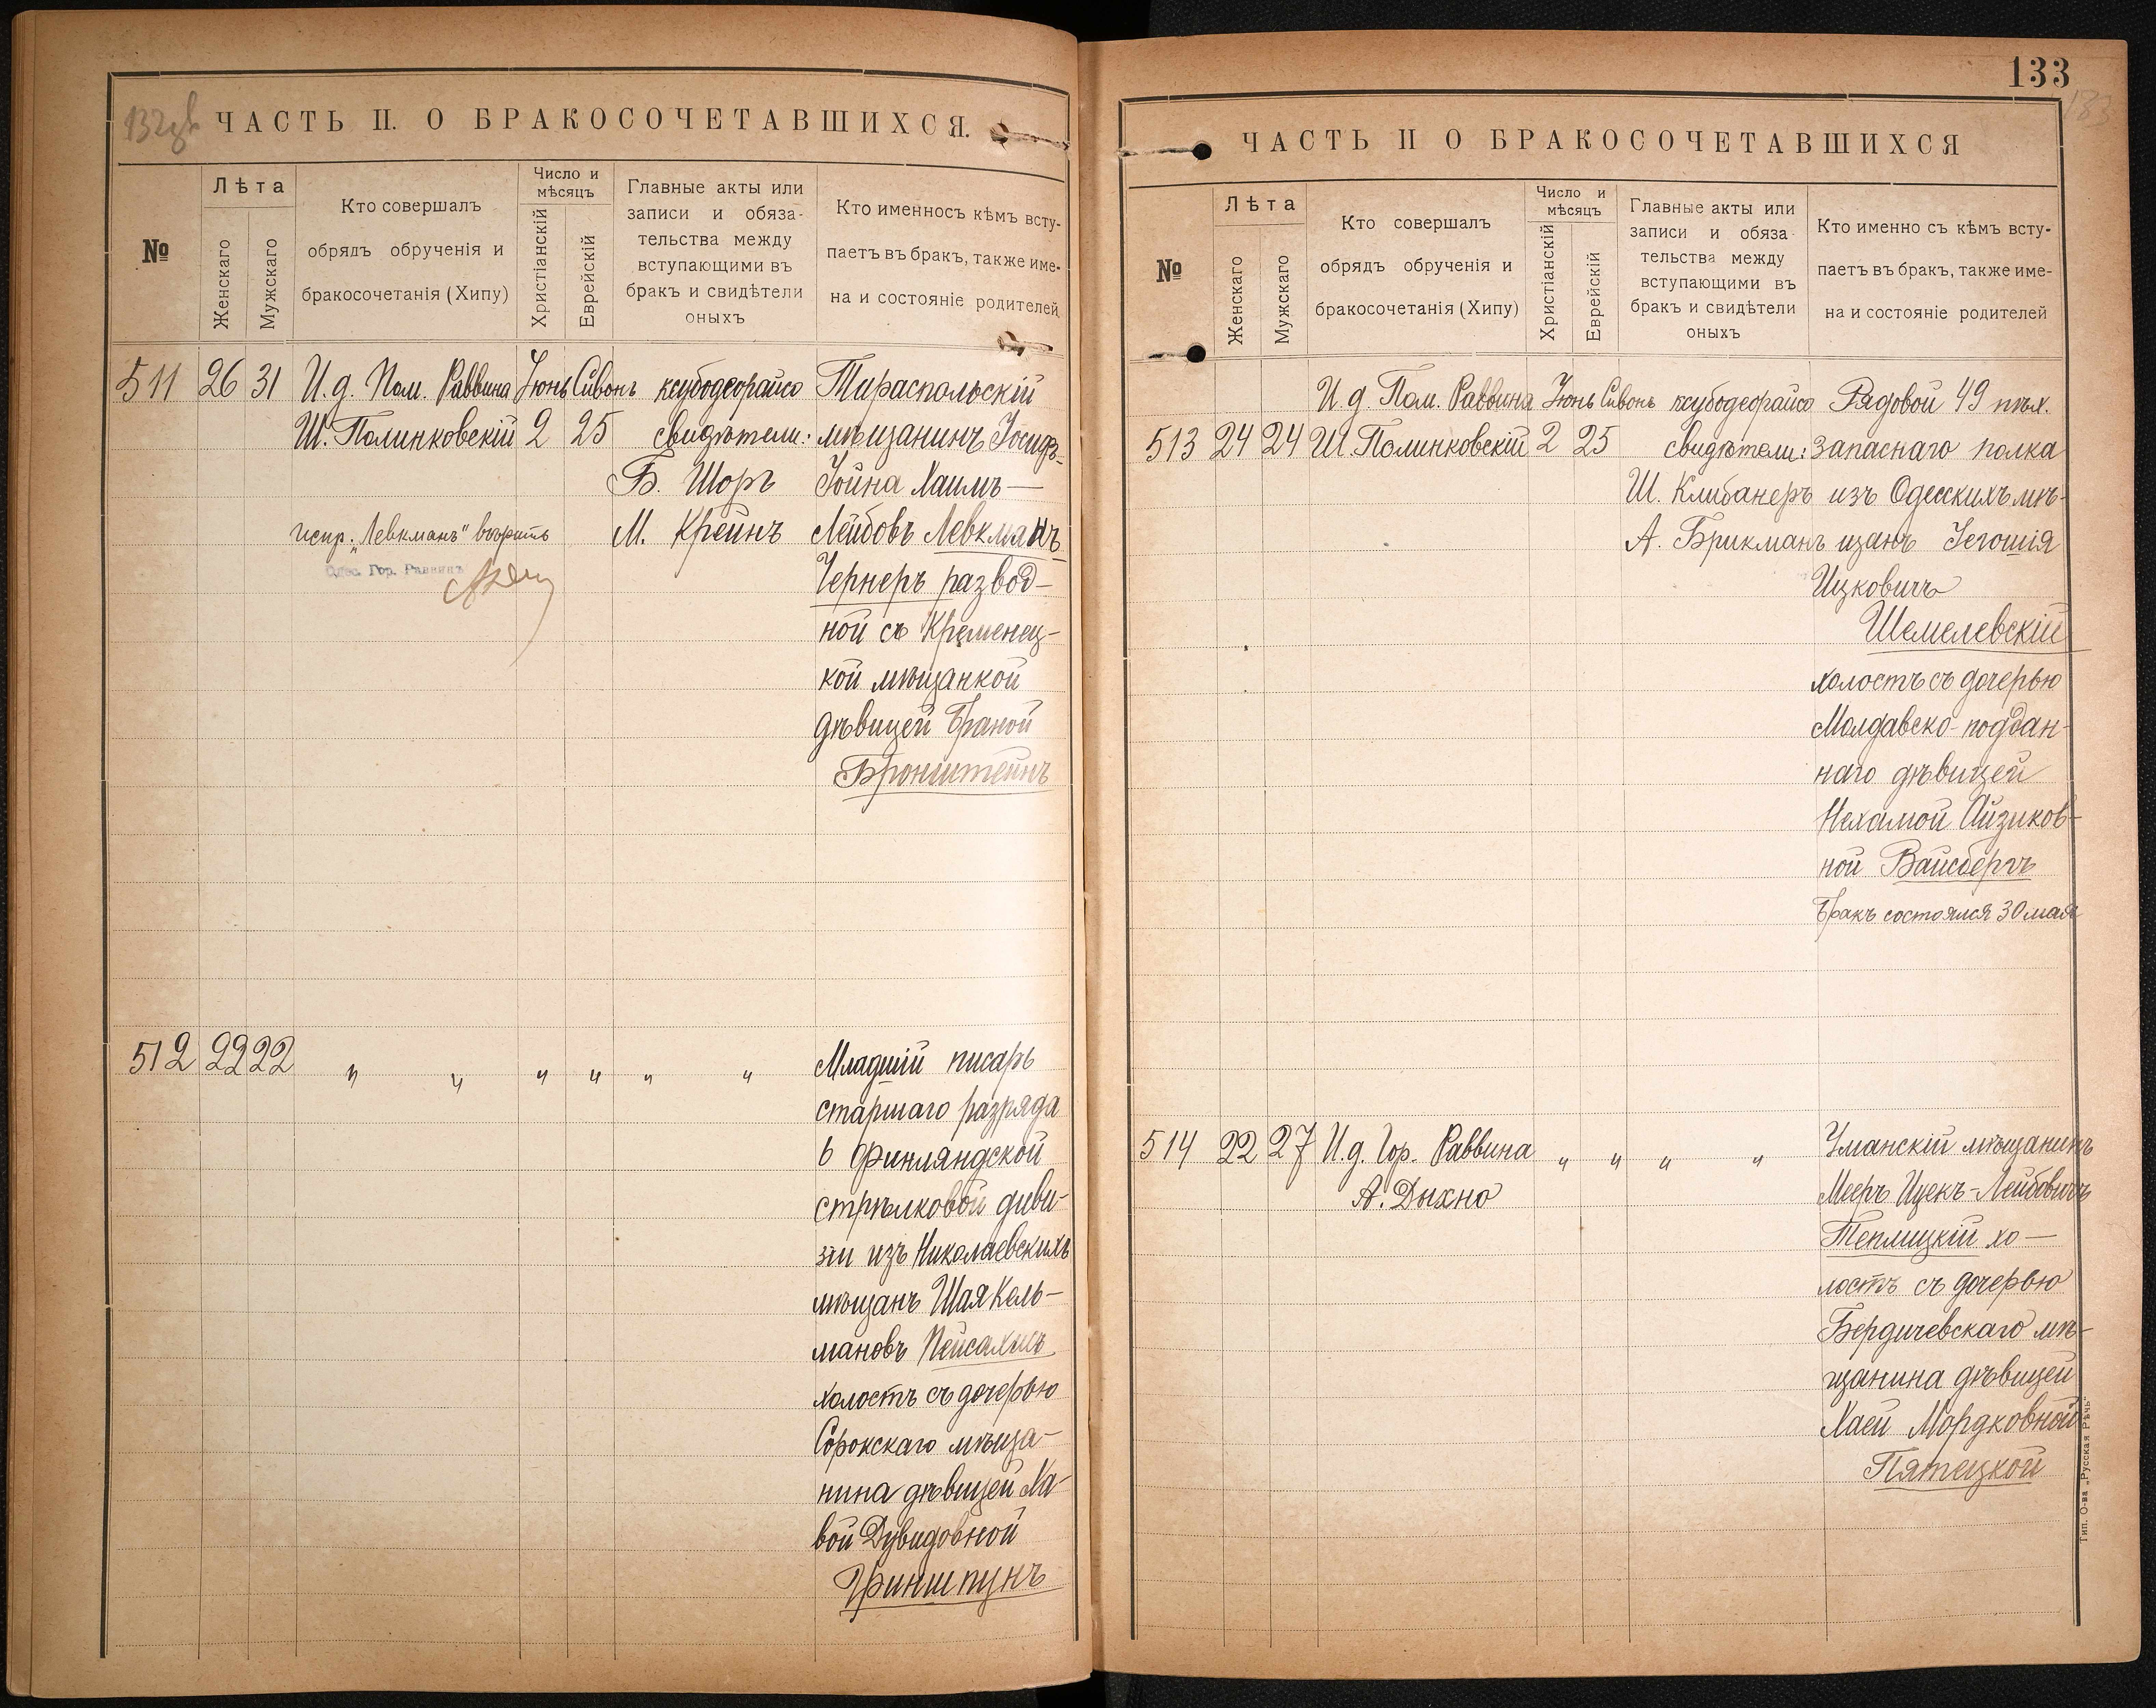 132 об
ЧАСТЬ II. О БРАКОСОЧЕТАВШИХСЯ.
№
Лѣта
Женскаго
Мужскаго
Кто совершалъ
обрядъ обрученія и
бракосочетанія (Хипу)
Число и
мѣсяцъ
Христіанскій
Еврейскій
Главные акты или
записи и обяза-
тельства между
вступающими въ
бракъ и свидѣтели
оныхъ
Кто именносъ кѣмъ всту-
паетъ въ бракъ, также име-
на и состояніе родителей
511 26 31 И. д. Пом. Раввина Іюнь Сивонъ ксубодеорайсо Тираспольскій
Ш. Полинковскій 2 25 свидѣтели: мѣщанинъ Іосифъ-
Б. Шоръ Іойна Хаимъ-
испр. „Левкманъ" вѣрить М. Крейнъ Лейбовъ Левкманъ
Одес. Гор. Раввинъ
Чернеръ развод-
ной съ Кременец-
кой мѣщанкой
дѣвицей Браной
Бронштейнъ
512 22 22 " " " " " " Младшій писарь
старшаго разряда
6 Финляндской
стрѣлковой диви-
зіи изъ Николаевскихъ
мѣщанъ Шая Кель-
мановъ Пейсахисъ
холостъ съ дочерью
Сорокскаго мѣща-
нина дѣвицей Ха-
вой Дувидовной
Гриншпунъ
133
133
ЧАСТЬ II О БРАКОСОЧЕТАВШИХСЯ
№
Лѣта
Женскаго
Мужскаго
Кто совершалъ
обрядъ обрученія и
бракосочетанія (Хипу)
Число и
мѣсяцъ
Христіанскій
Еврейскій
Главные акты или
записи и обяза-
тельства между
вступающими въ
бракъ и свидѣтели
оныхъ
Кто именно съ кѣмъ всту-
паетъ въ бракъ, также име-
на и состояніе родителей
И. д. Пом. Раввина Іюнь Сивонъ ксубодеорайсо Рядовой 49 пѣх.
513 24 24 Ш. Полинковскій 2 25 свидѣтели: запаснаго полка
Ш. Клибанеръ изъ Одесскихъ мѣ-
А. Брикманъ щанъ Іегошія
Ицковичъ
Шемелевскій
холостъ съ дочерью
Молдавско-поддан-
наго дѣвицей
Нехамой Айзиков-
ной Вайсбергъ
Бракъ состоялся 30 мая
514 22 27 И. д. Гор. Раввина " " " " Уманскій мѣщанинъ
А. Дыхно Мееръ Ицекъ-Лейбовичъ
Теплицкій хо-
лостъ съ дочерью
Бердичевскаго мѣ-
щанина дѣвицей
Хаей Мордковной
Пятецкой
Тип. О-ва „Русская Рѣчь"